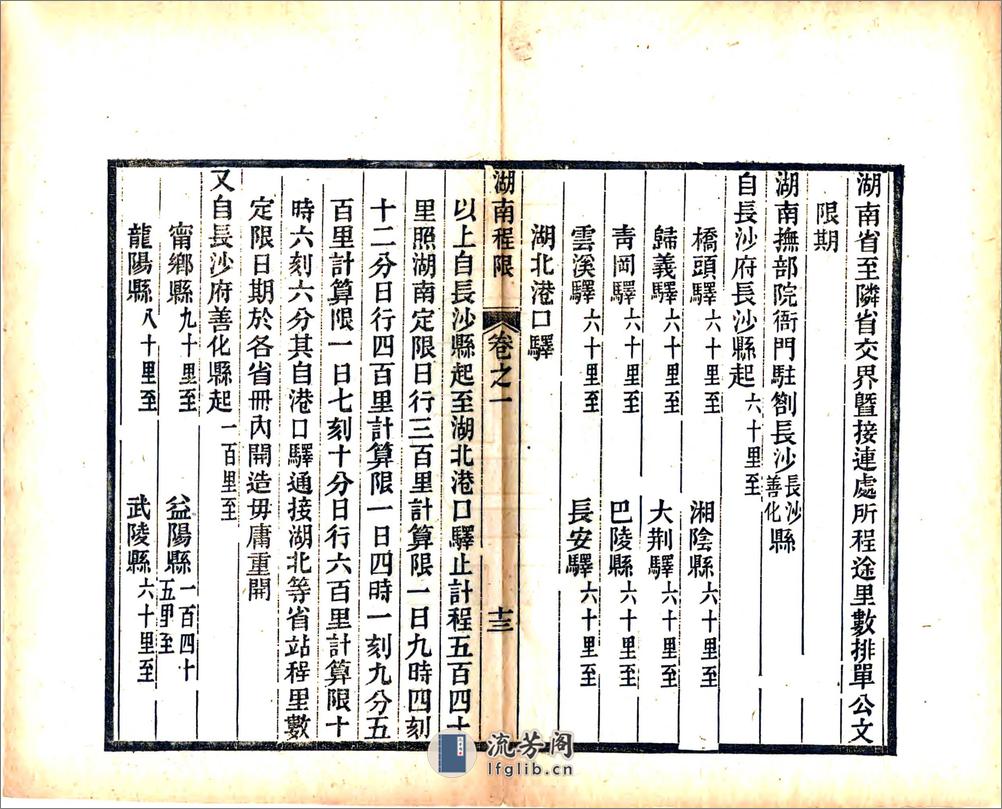 湖南省至隣省交界曁接連處所程途里數排單公文
限期
湖南撫部院衙門駐劄長沙長沙善化縣
自長沙府長沙縣起六十里至
橋頭驛六十里至 湘陰縣六十里至
歸義驛六十里至 大荆驛六十里至
靑岡驛六十里至 巴陵縣六十里至
雲溪驛六十里至 長安驛六十里至
湖北港口驛
湖南程限 卷之一 十三
以上自長沙縣起至湖北港口驛止計程五百四十
里照湖南定限日行三百里計算限一日九時四刻
十二分日行四百里計算限一日四時一刻九分五
百里計算限一日七刻十分日行六百里計算限十
時六刻六分其自港口驛通接湖北等省站程里數
定限日期於各省冊內開造毋庸重開
又自長沙府善化縣起一百里至
甯鄉縣九十里至 益陽縣一百四十五里至
龍陽縣八十里至 武陵縣六十里至
流芳阁
lfglib.cn